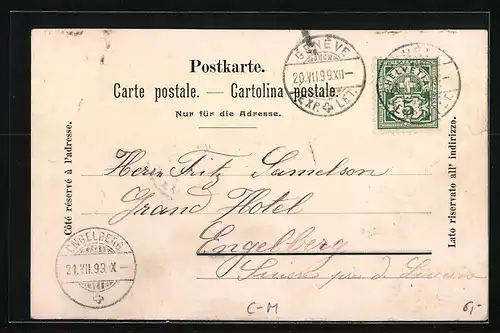 Postkarte.
Carte postale. — Cartolina postale.
Nur für die Adresse.
Côté réservé à l'adresse.
Lato riservato all' indirizzo.
GENÈVE
20.VII.99.XII–
EXP. LET.
HELVETIA
5
Herrn Fritz Samelson
Grand Hotel
Engelberg
Suisse
ENGELBERG
21.VII.99.X–
C-M
6,-